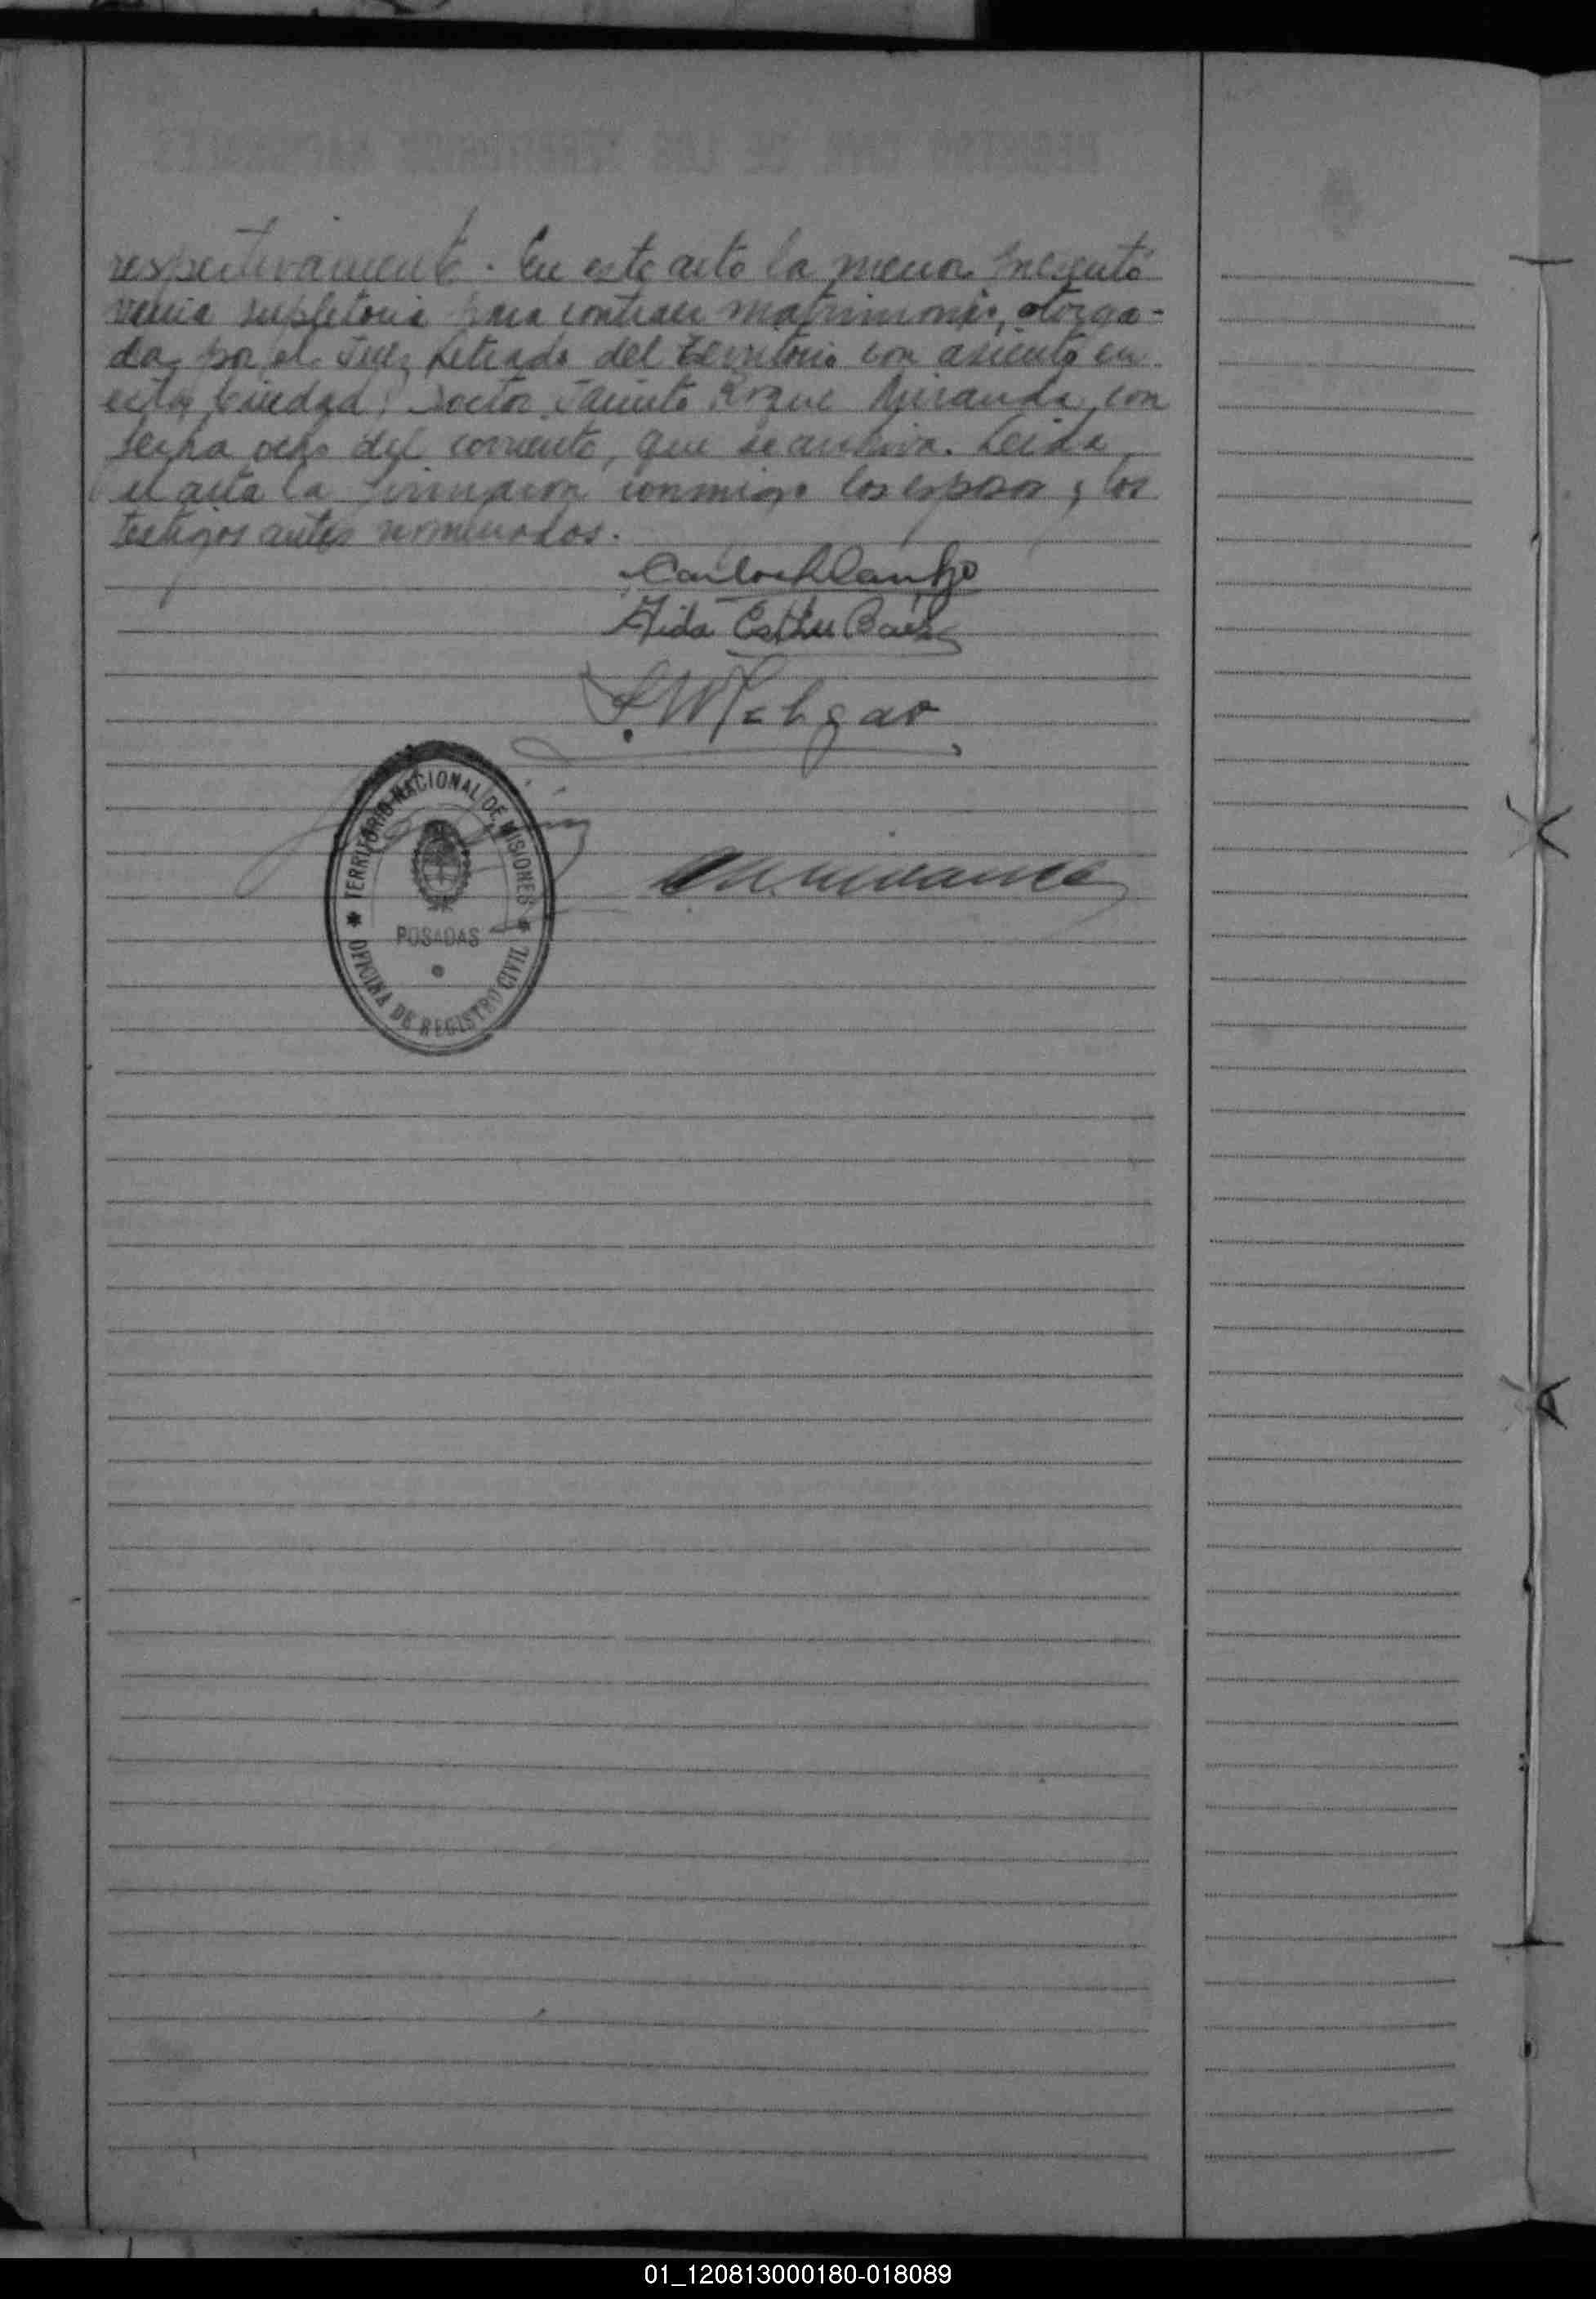 respectivamente. En este acto la menor presentó
venia supletoria para contraer matrimonio, otorga-
da por el Juez Letrado del Territorio con asiento en
esta Ciudad, Doctor Jacinto Roque Miranda, con
fecha ocho del corriente, que se archiva. Leida
el acta la firmaron conmigo los esposos y los
testigos antes nominados.
Aida Esther Baez
TERRITORIO NACIONAL DE MISIONES
POSADAS
OFICINA DE REGISTRO CIVIL
01_120813000180-018089